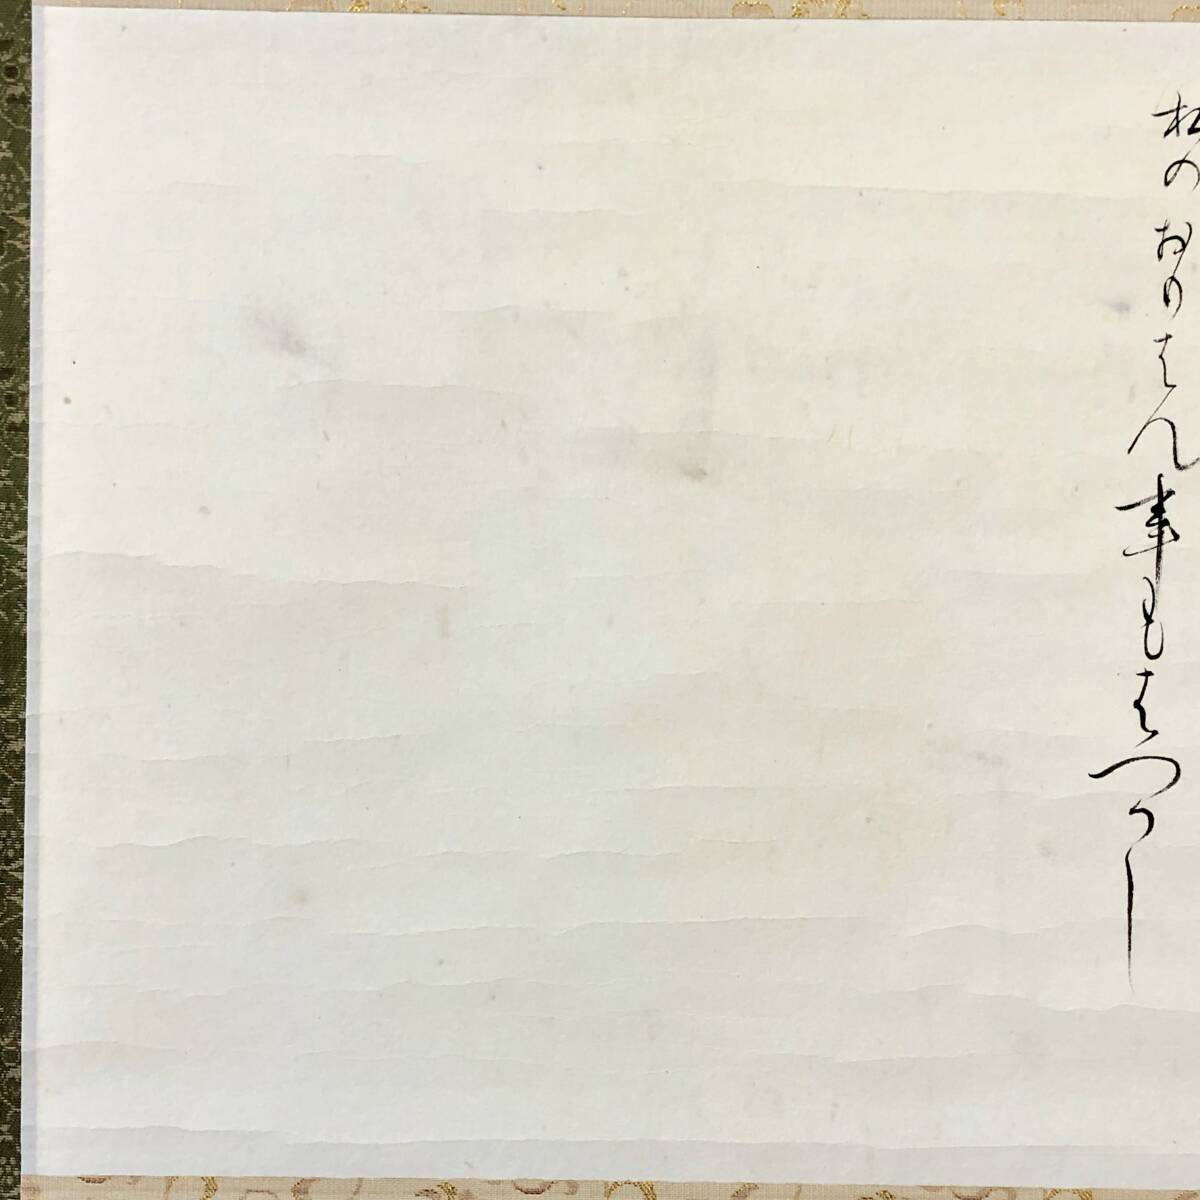 松のおもはん事もはつかし